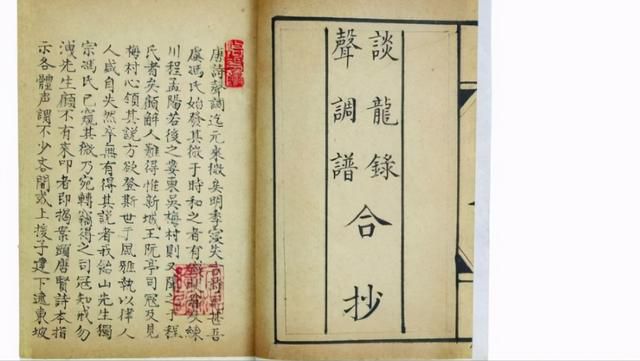 談龍錄
聲調譜
合抄
唐詩聲調迄元來微矣明季寖失古詩尤甚吾
虞馮氏始發其微于時和之者有錢牧齋矣練
川程孟陽若後之婁東吳梅村則又聞之于程
氏者矣顧解人難得惟新城王阮亭司冠及見
梅村心領其說方欲登斯世于風雅執以律人
人咸自失然卒無有得其說者我飴山先生獨
宗馮氏已窺其微乃宛轉竊得之司冠知戒勿
洩先生顧不有來叩者即揭案頭唐賢詩本指
示各體声調不少吝間或上援子建下逮東坡